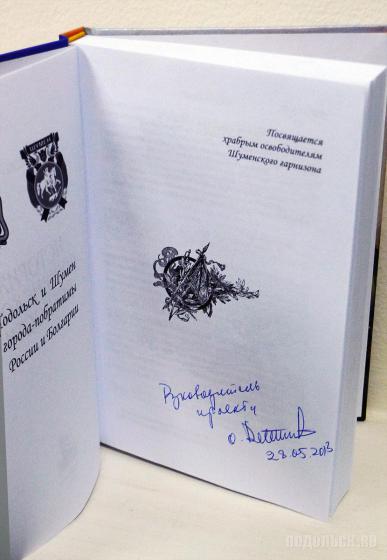 ШУМЕН
Подольск и Шумен
города-побратимы
России и Болгарии
Посвящается
храбрым освободителям
Шуменского гарнизона
Руководитель
проекта
О.
28.05.2013
ПОДОЛЬСК.RU